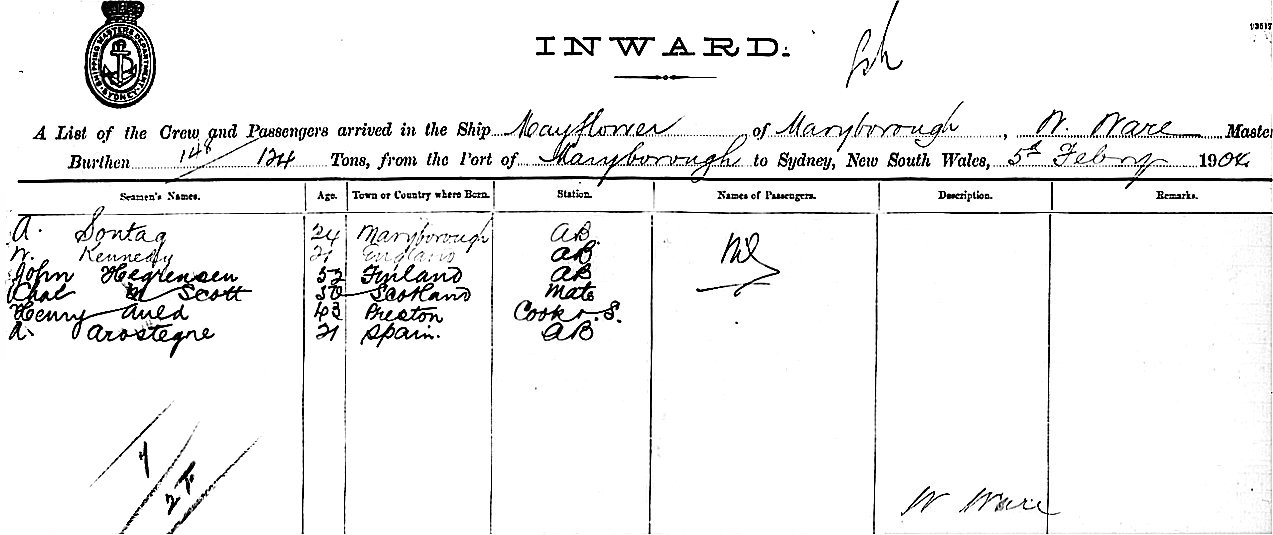 SHIPPING MASTER'S DEPARTMENT
SYDNEY
INWARD.
A List of the Crew and Passengers arrived in the Ship Mayflower of Maryborough, W. Ware Master
Burthen 148/124 Tons, from the Port of Maryborough to Sydney, New South Wales, 5th Febry 1904
Seamen's Names. Age. Town or Country where Born. Station. Names of Passengers. Description. Remarks.
A. Sontag 24 Maryborough AB Nil
W. Kennedy 21 England AB
John Hegrensen 52 Finland AB
Chal Scott Scotland Mate
Henry Auld 43 Preston Cook & S.
A. Arostegne 21 Spain. AB
W Ware